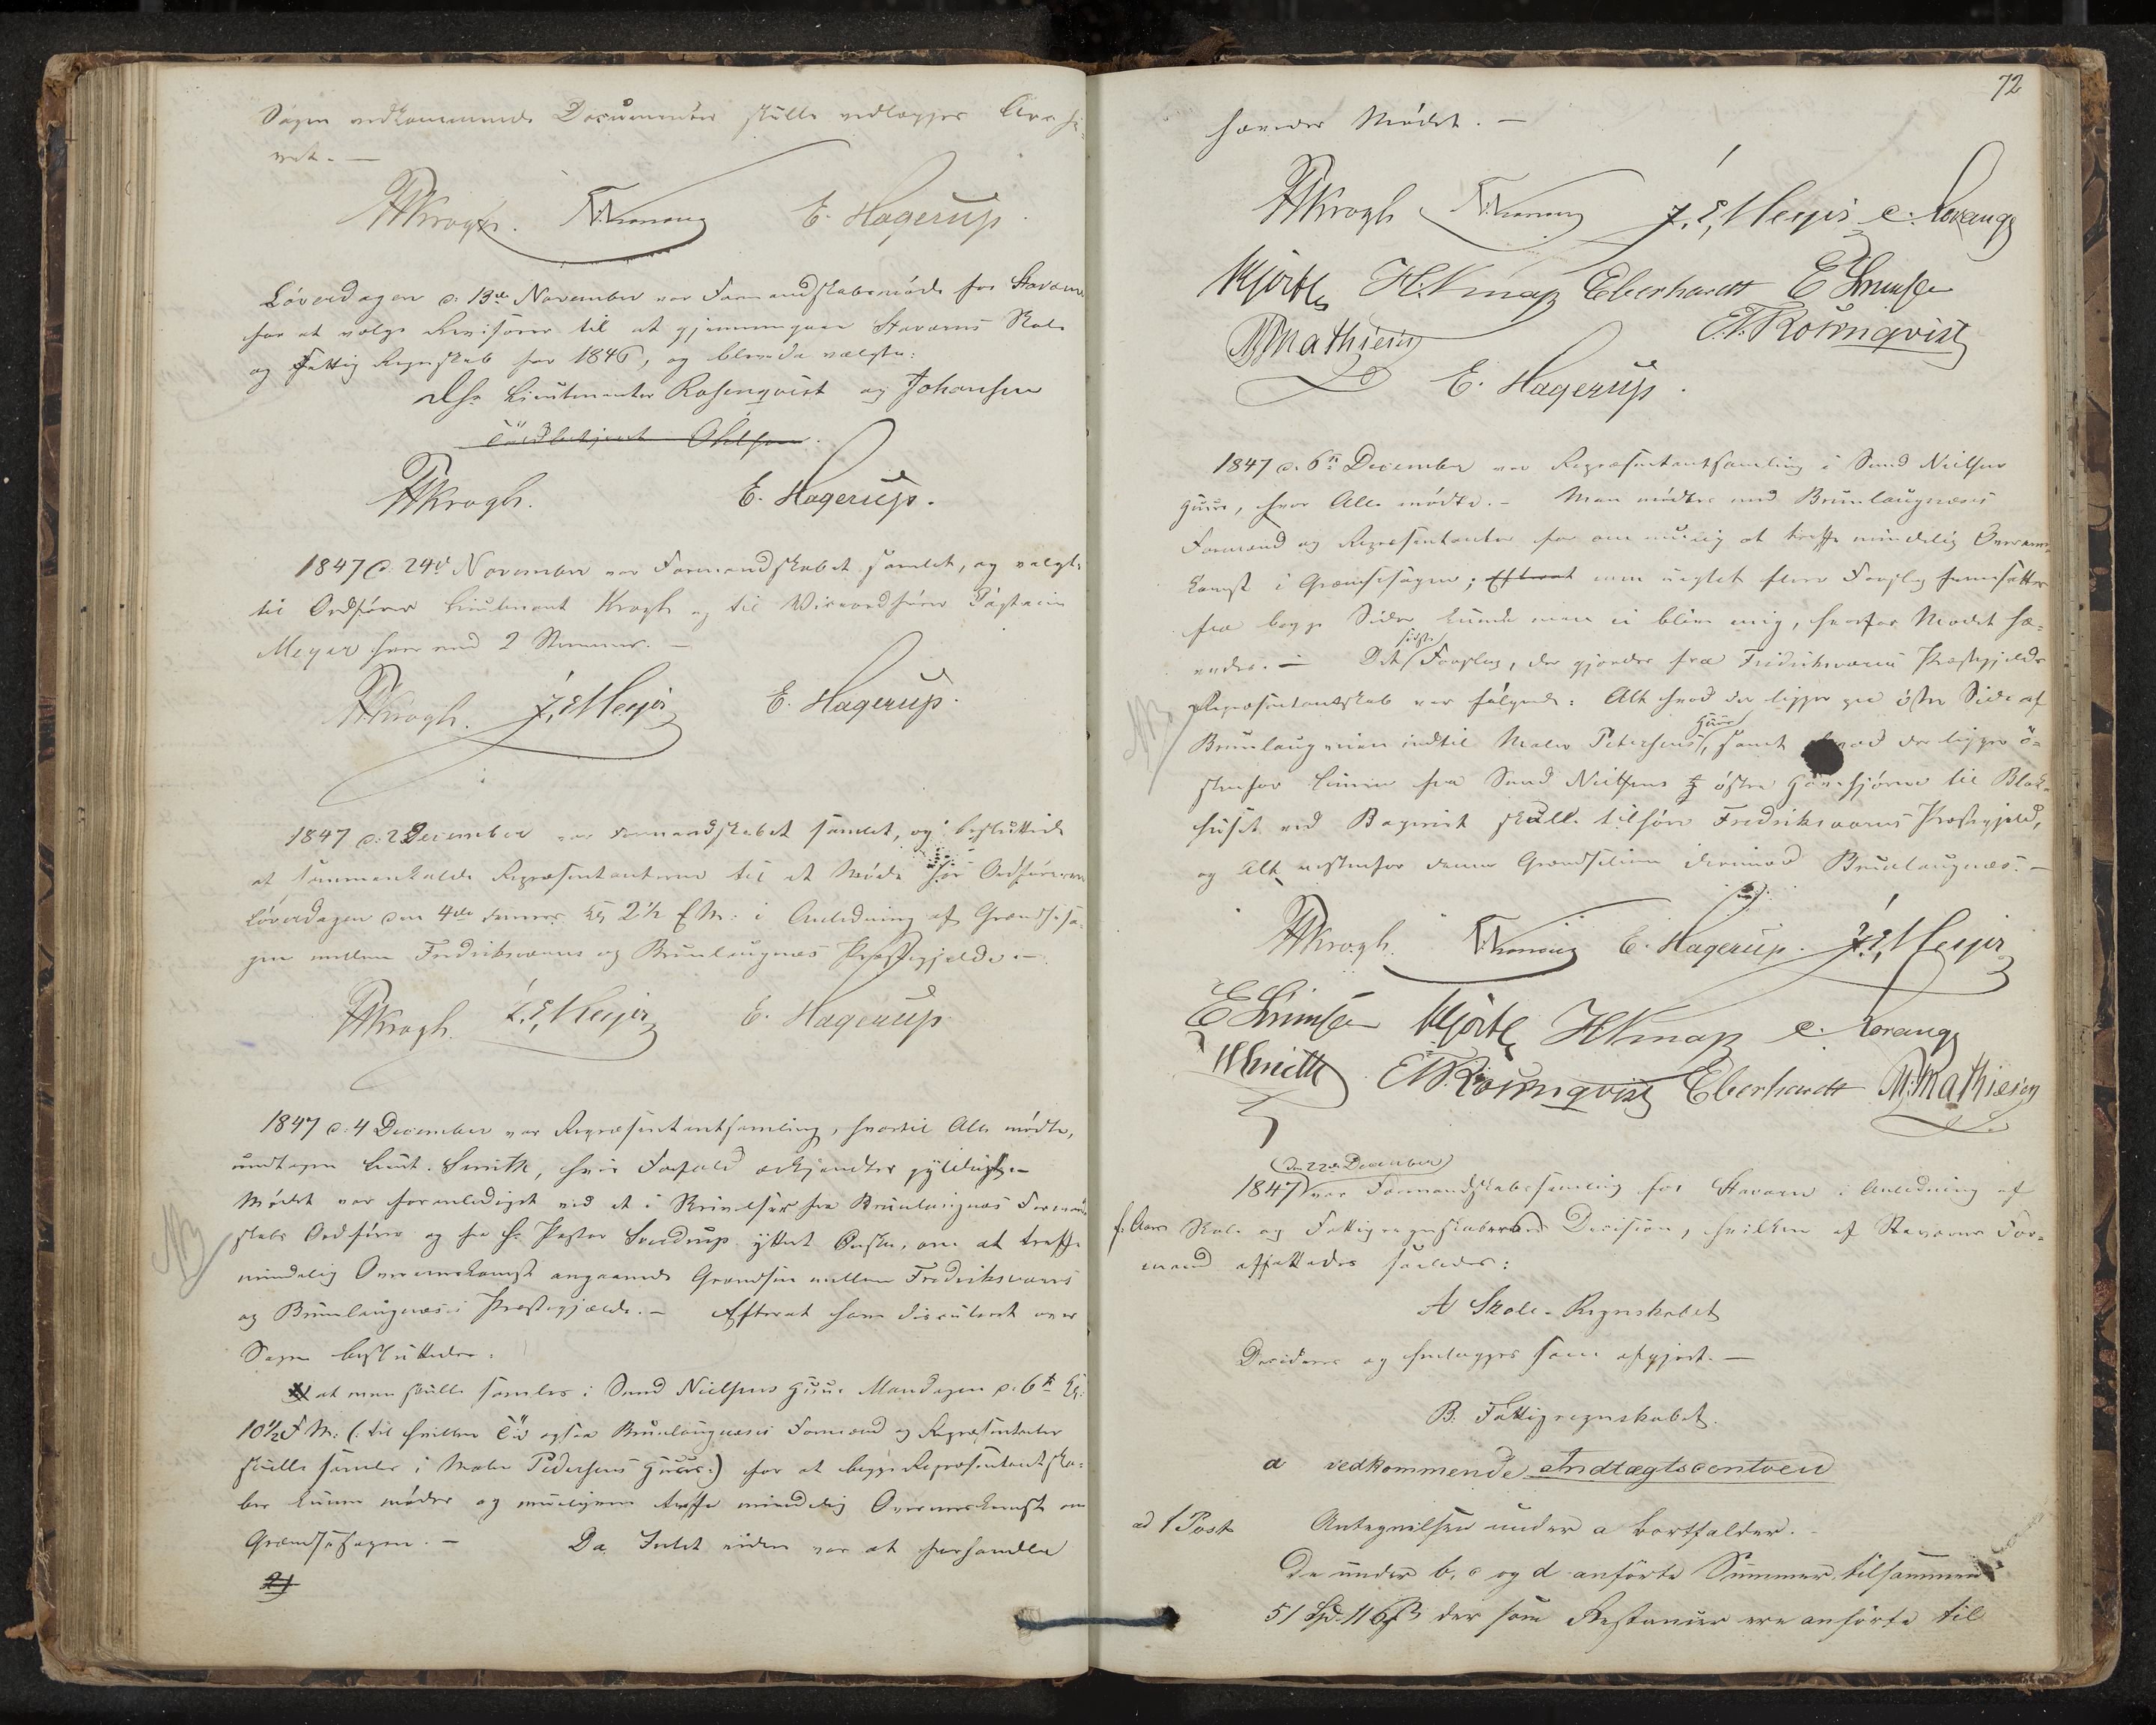 Sagen vedkommende Documenter skulle vedlægges Archi-
vet. —
Krogh. E. Hagerup.
Løverdagen d. 13de November var Formandskabsmøde for Stavern
for at vælge Revisorer til at gjennemgaae Staverns Skole
og Fattig Regnskab for 1846, og bleve da valgte:
Dhr Lieutenanter Rosenqvist og Johansen
Toldbetjent Ohlsen.
Krogh. E. Hagerup.
1847 d. 24d November var Formandskabet samlet, og valgte
til Ordfører Lieutenant Krogh og til Viceordfører
Meyer hver med 2 Stemmer. —
Krogh. J. E. Meyer E. Hagerup.
1847 d. 2 December var Formandskabet samlet, og besluttede
at sammenkalde Repræsentanterne til et Møde hos Ordføreren
Løverdagen den 4de dennes Kl 2½ E M: i Anledning af Grændsesa-
gen mellem Fredriksværns og Brunlaugnæs Præstegjelde. —
Krogh. J. E. Meyer E. Hagerup
1847 d. 4 December var Repræsentantsamling, hvortil Alle mødte,
undtagen Lieut. Smith, hvis Forfald ansaaes gyldigt. —
Mødet var foranlediget ved et i Skrivelser fra Brunlaugnæs Formand-
skabs Ordfører og fra Hr Pastor Sverdrup yttret Ønske, om at træffe
mindelig Overenskomst angaaende Grændsen mellem Fredriksværns
og Brunlaugnæsis Præstegjelde. — Efterat have discuteret over
Sagen besluttedes:
1) at man skulle samles i Sund Nielsens Huus Mandagen d. 6te Kl:
10½ F M: (: til hvilken Tid ogsaa Brunlaugnæsis Formænd og Repræsentanter
skulle samles i Maler Pedersens Huus:) for at begge Repræsentantska-
ber kunne mødes og muligens træffe mindelig Overenskomst om
Grændsesagen. — Da Intet videre var at forhandle
2)
NB
72
hævedes Mødet. —
Krogh J. E. Meyer C. Norang
Hjorth H. Knap Eberhardt
M Mathiesen E. T. Rosenqvist
E. Hagerup.
1847 d. 6te December var Repræsentantsamling i Sund Nielsens
Huus, hvor Alle mødte. — Man mødtes med Brunlaugnæsis
Formænd og Repræsentanter for om muligt at træffe mindelig Overeens-
komst i Grændsesagen; Efterat men uagtet flere Forslag fremsattes
fra begge Sider kunde man ei blive enig, hvorfor Mødet hæ-
vedes. — Det sidste Forslag, der gjordes fra Fredriksværns Præstegjelds
Repræsentantskab var følgende: Alt hvad der ligger paa østre Side af
Brunlaugveien indtil Maler Petersens Huus, samt hvad der ligger ø-
stenfor Linien fra Sund Nielsens østre Huushjørne til Blok-
huset ved Bagerit skulle tilhøre Fredriksværns Præstegjeld,
og Alt vestenfor denne Grændselinie derimod Brunlaugnæs. —
NB.
Krogh. E. Hagerup. J. E. Meyer
Hjorth H Knap C. Norang
Smith E. T. Rosenqvist Eberhardt M. Mathiesen
den 22de December
1847 var Formandskabssamling for Stavern i Anledning af
f. Aars Skole og Fattigregnskabers Decision, hvilken af Staverns For-
mænd affattedes saaledes:
A Skole-Regnskabet
Decideres og henlægges som afgjort. —
B. Fattigregnskabet.
a vedkommende Indtægtscontoen
ad 1 Post Antegnelsen under a bortfalder. —
De under b, c og d anførte Summer, tilsammen
51 Spd. 116 ß der som Restancer ere anførte til